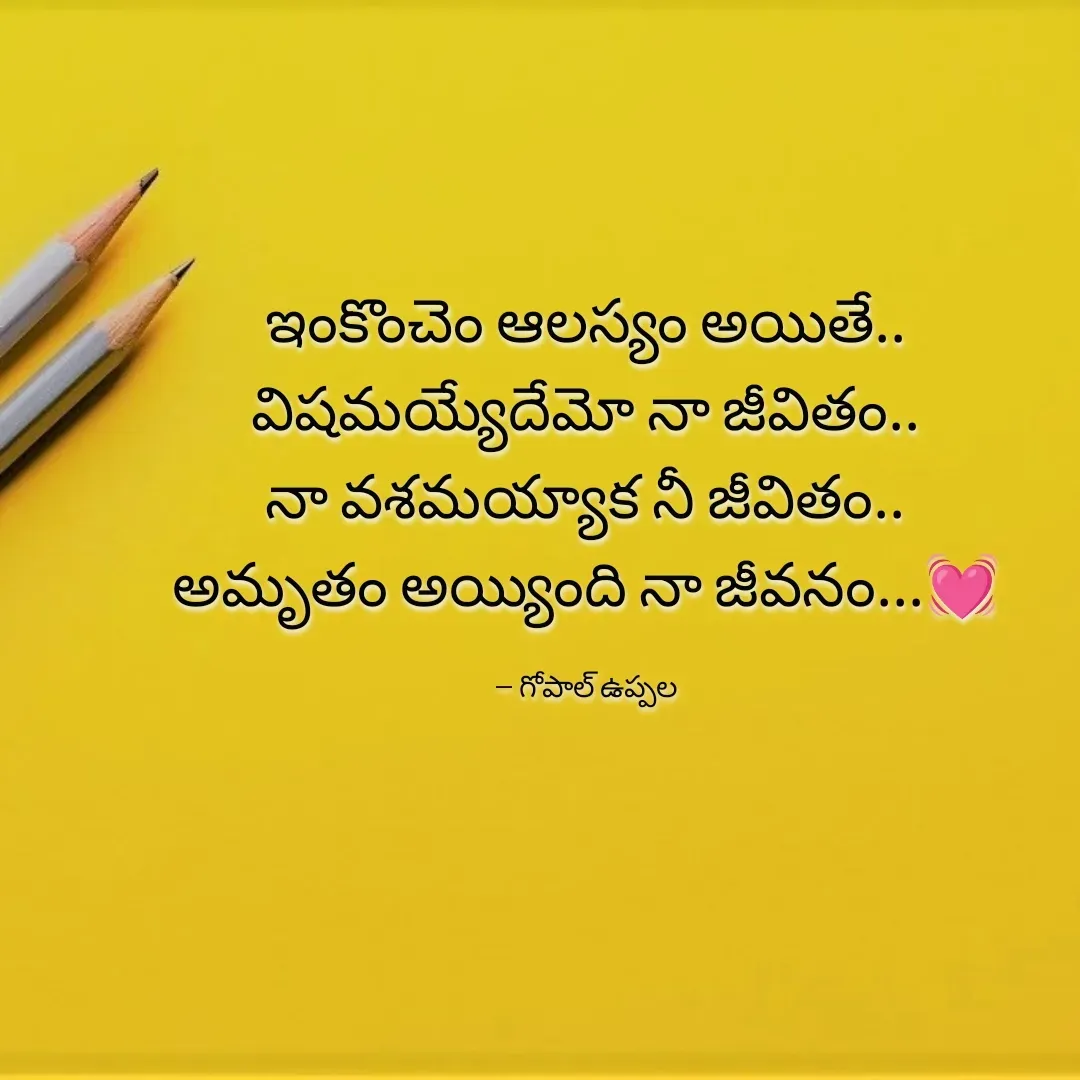 ఇంకొంచెం ఆలస్యం అయితే..
విషమయ్యేదేమో నా జీవితం..
నా వశమయ్యాక నీ జీవితం..
అమృతం అయ్యింది నా జీవనం...💓
– గోపాల్ ఉప్పల